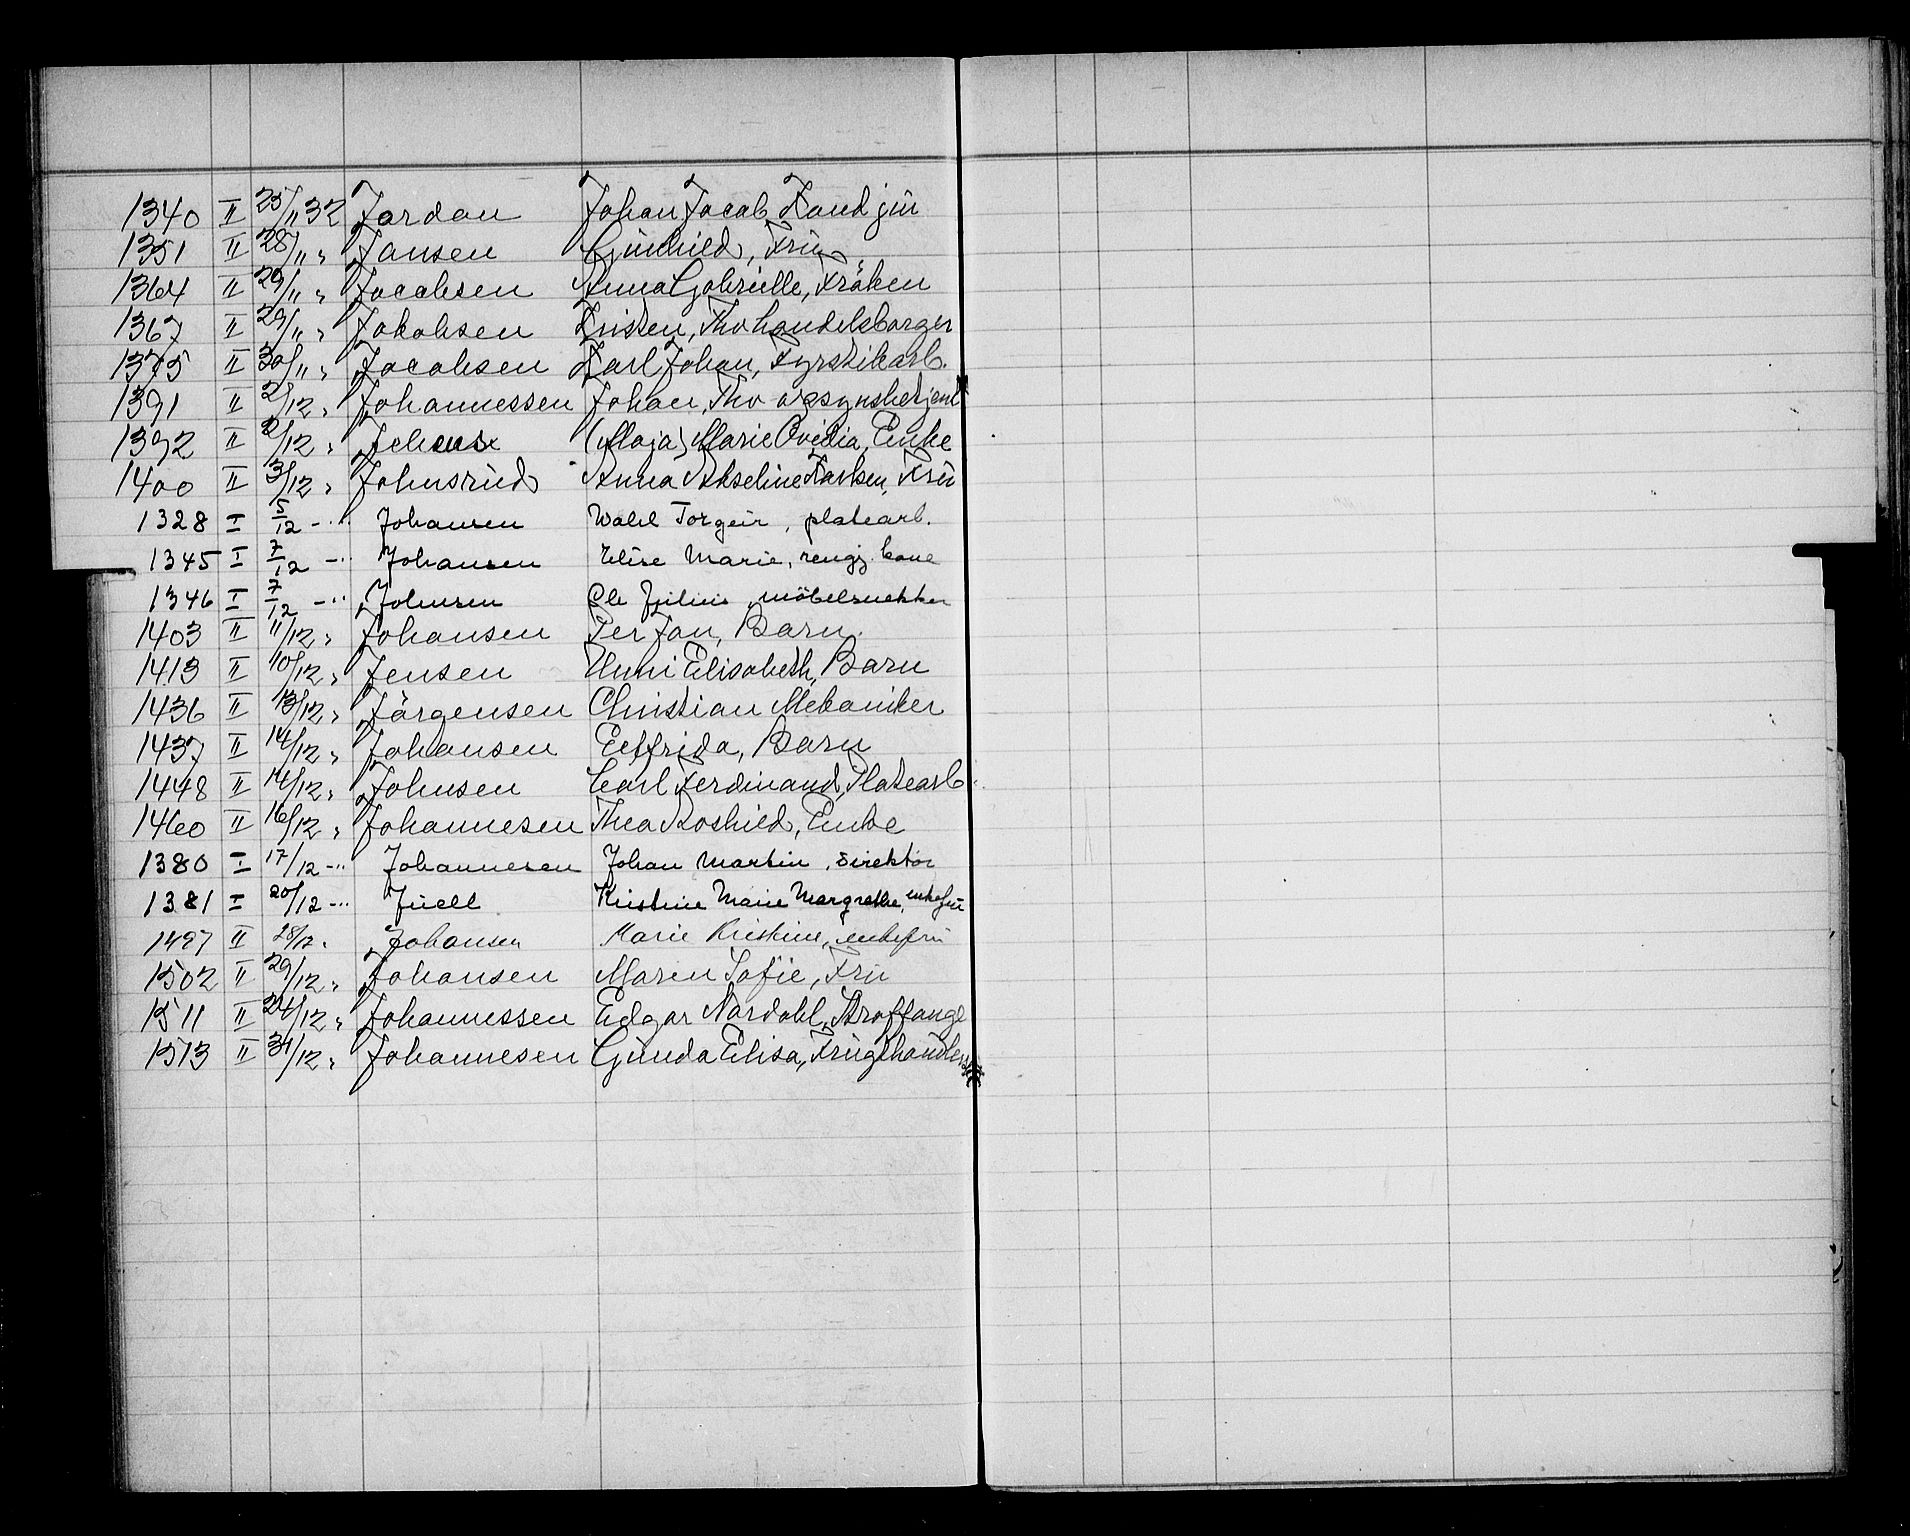 1340 II 25/11 32 Jordan Johan Jacob, Kand jur
1351 II 28/11 " Jansen Gunhild, Fru
1364 II 29/11 " Jacobsen Anna Gabrielle, Fröken
1367 II 29/11 " Jakobsen Kristen, Fhv handelsborger
1375 II 30/11 " Jacobsen Karl Johan, Fyrstikarb.
1391 II 2/12 " Johannessen Johan, Fhv opsynsbetjent
1392 II 2/12 " (Maja) Marie Ovidia, Enke
1400 II 3/12 " Johnsrud Anna Akseline Karlsen, Fru
1328 I 5/12 - " Johansen Wahl Torgeir, platearb.
1345 I 7/12 - " Johansen Elise Marie, rengj. kone
1346 I 7/12 - " Johnsen Ole Julius, möbelsnekker
1403 II 11/12 " Johansen Per Jan, Barn.
1413 II 10/12 " Jensen Unni Elisabeth, Barn
1436 II 13/12 " Jörgensen Christian Mekaniker
1437 II 14/12 " Johansen Elfrida, Barn
1448 II 14/12 " Johnsen Carl Ferdinand, Platearb.
1460 II 16/12 " Johannesen Thea Roshild, Enke
1380 I 17/12 - " Johannesen Johan Martin, direktör
1381 I 20/12 - " Juell Kristine Marie Margrethe, enkefru
1497 II 28/12 " Johansen Marie Kristine, enkefru
1502 II 29/12 " Johansen Maren Sofie, Fru
1511 II 24/12 " Johannessen Edgar Nordahl, Straffange
1513 II 31/12 " Johannesen Gunda Elisa, Frugthandler